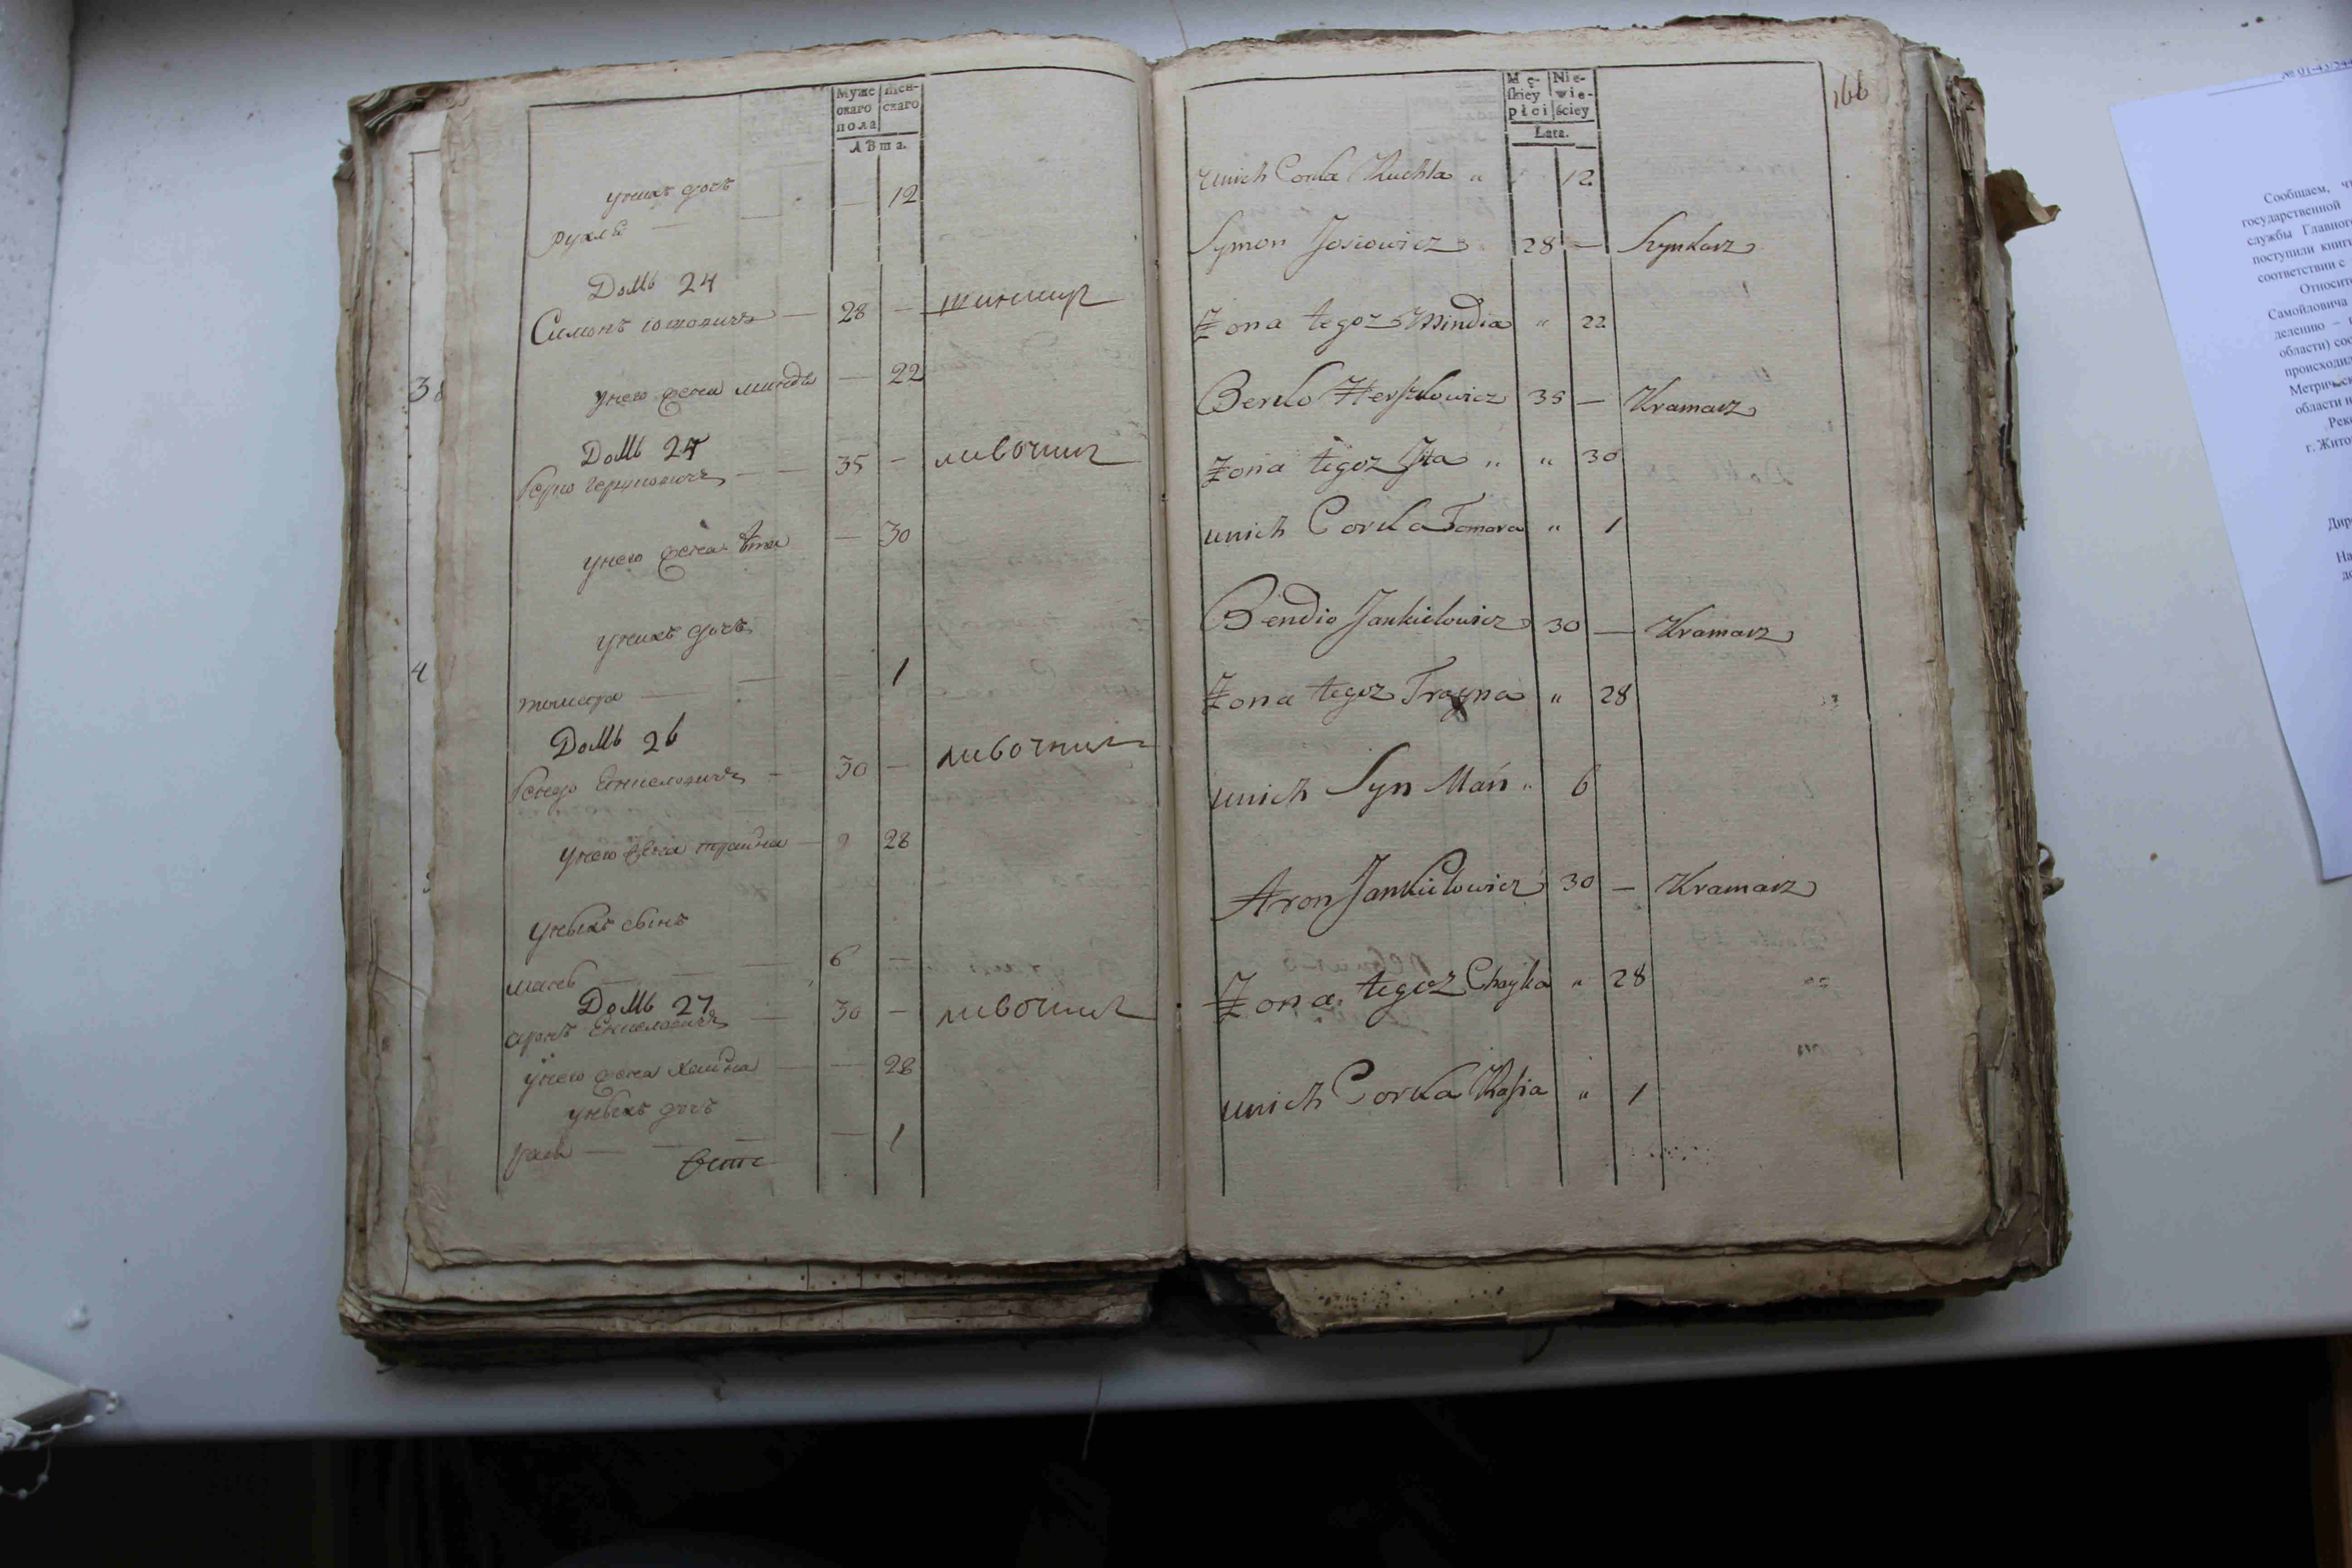 Муже
скаго
пола
Жен-
скаго
Лѣта.
у нихъ дочь
рухля — — 12
Домъ 24
Симонъ Іошовичъ — 28 — шинкар
у него жена минда — 22
Домъ 25
35 — лавочник
у него жена ита — 30
у нихъ дочь
томара — — 1
Домъ 26
30 — лавочник
у него жена трайна — 28
у ныхъ сынъ
мань — — — 6 —
Домъ 27
аронъ — 30 — лавочник
у него жена хайка — — 28
у ныхъ дочь
— — — 1
Mę-
skiey
płci
Nie-
wie-
ściey
Lata.
166
unich Corka Ruchla „ 12
Symon Josiowicz 28 — Szynkarz
Żona tegoz Mindla „ 22
Berko Herszkowicz 35 — Kramarz
Żona tegoz Ita „ „ 30
unich Corka Tomara „ 1
Bendio Jankielowicz 30 — Kramarz
Żona tegoz Trayna „ 28
unich Syn Mań „ 6
Aron Jankielowicz 30 — Kramarz
Żona tegoz Chayka „ 28
unich Corka Rasia „ 1
Сообщаем,
государственной
службы
поступили
соответствии с
Самойловича
делению –
области)
области и
г.